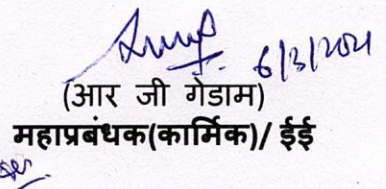 6/3/2021
(आर जी गेडाम)
महाप्रबंधक(कार्मिक)/ ईई